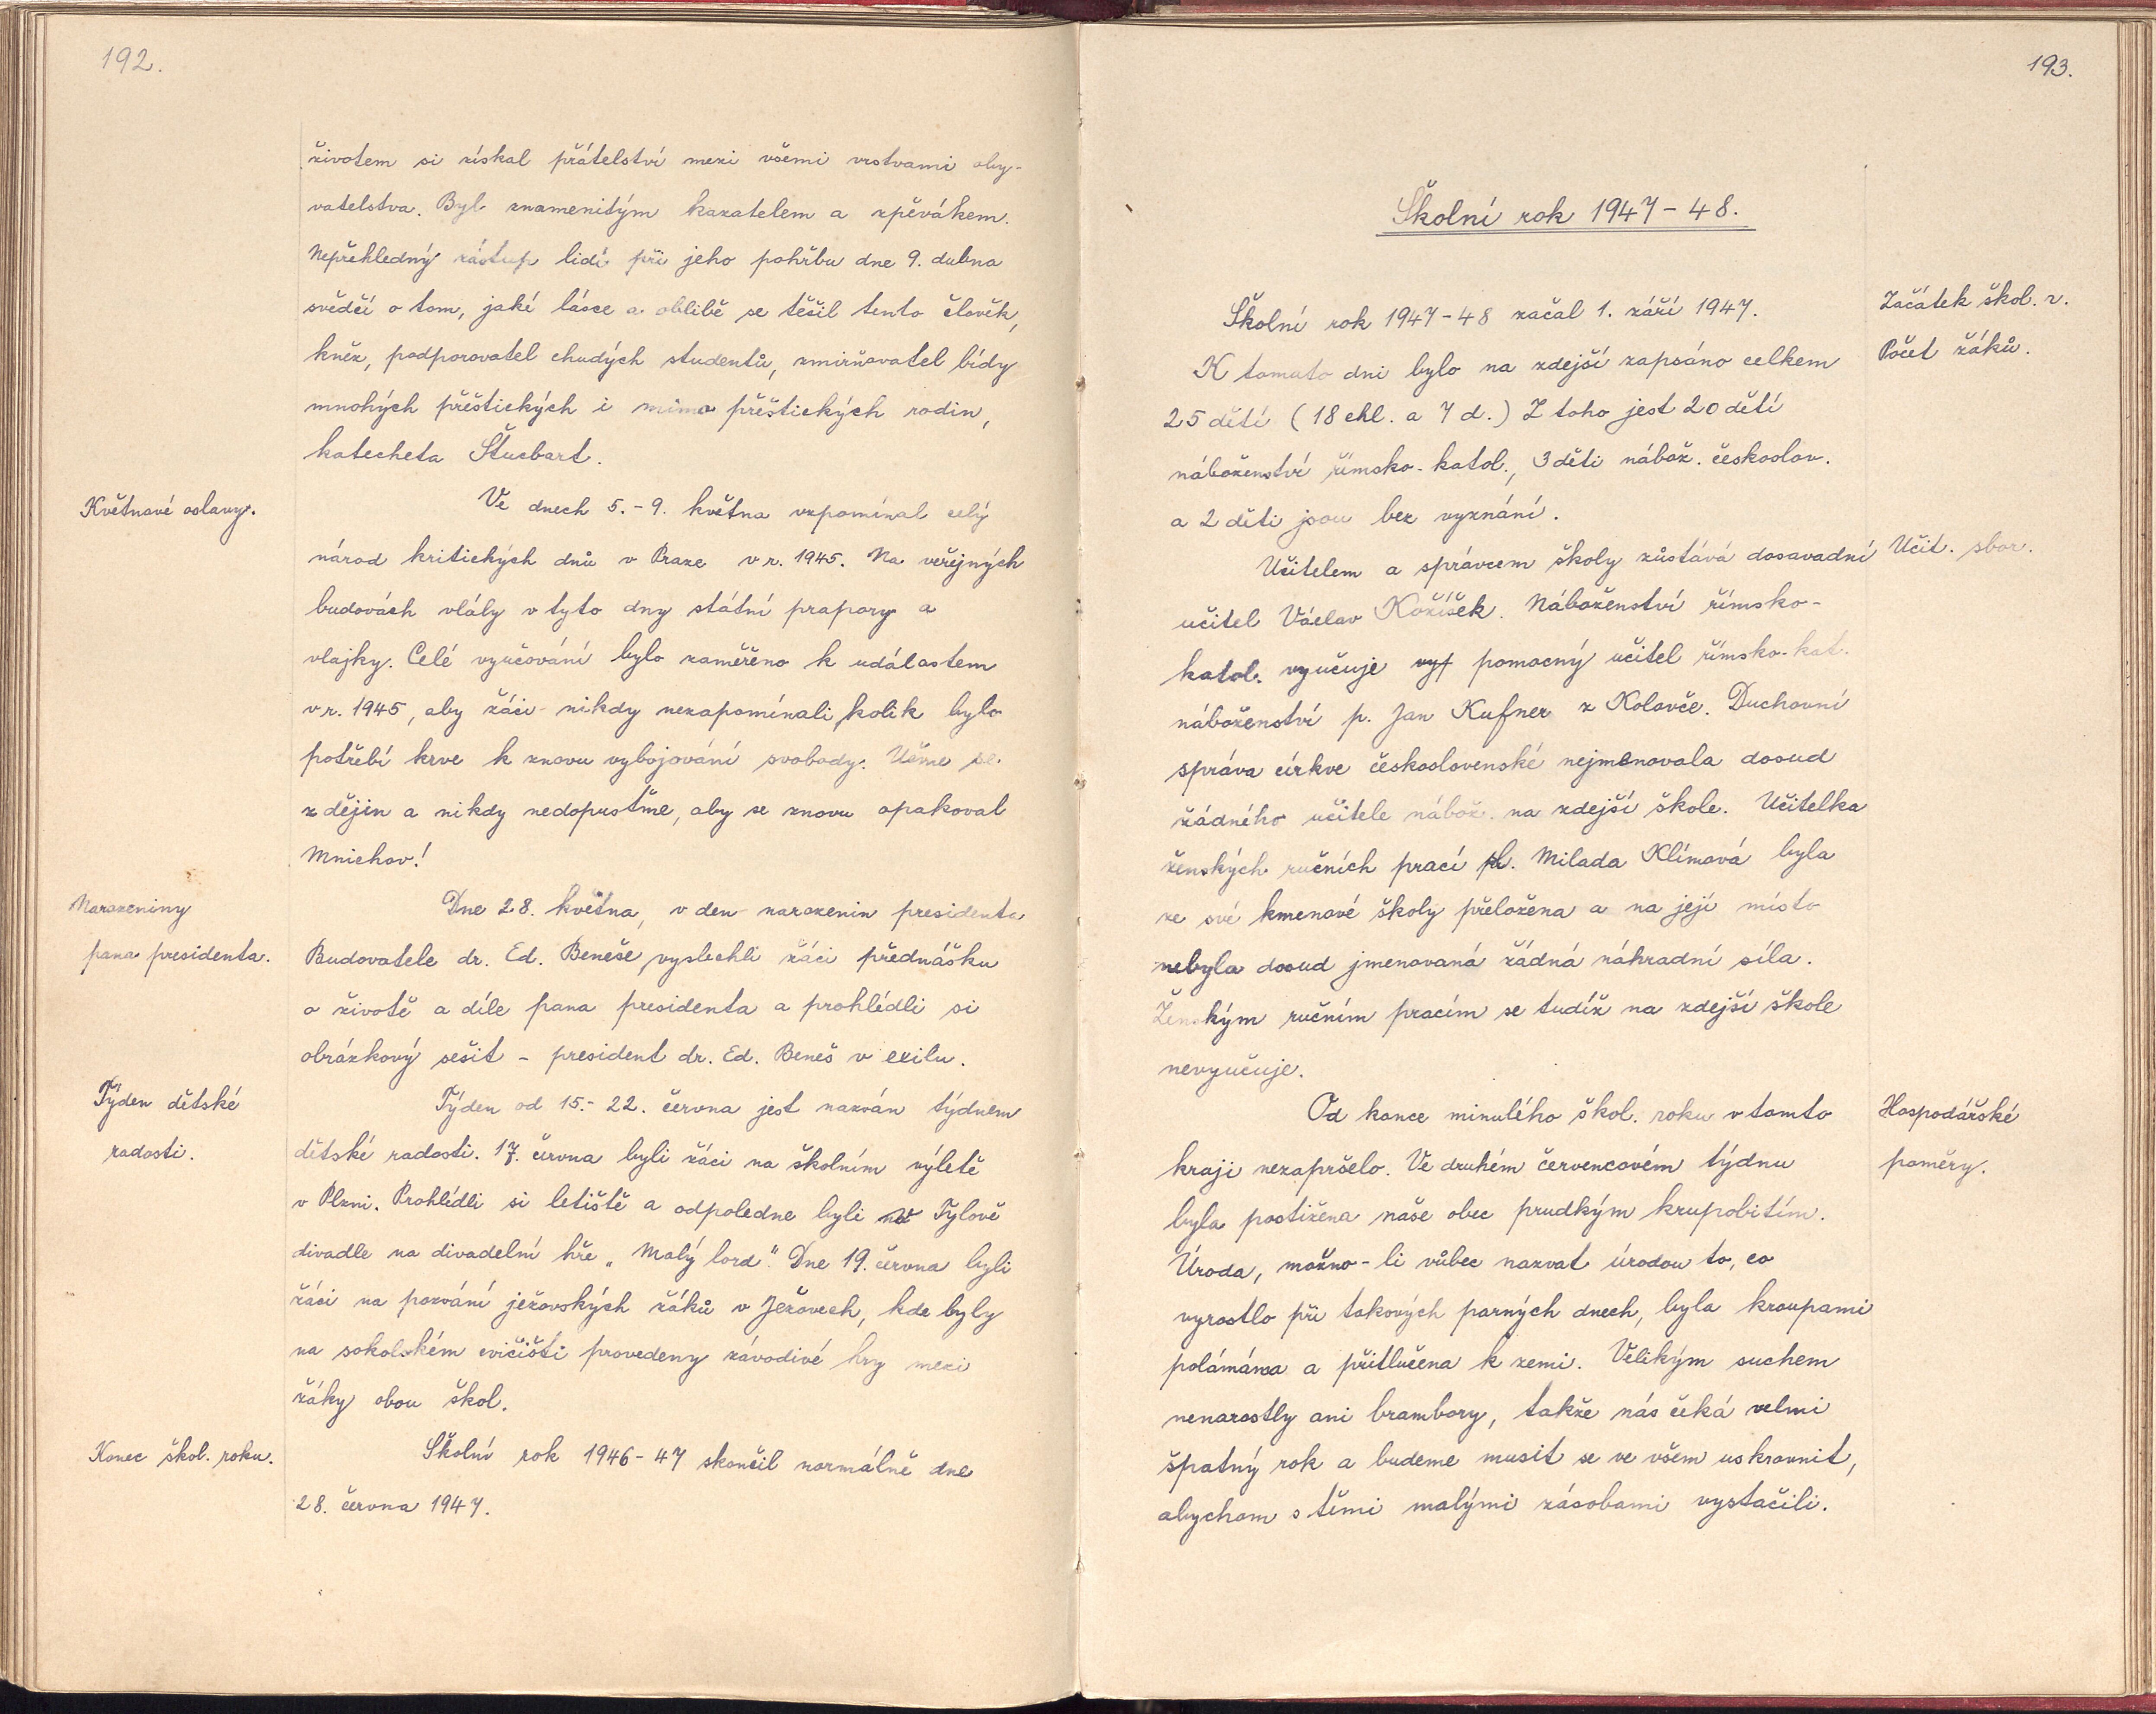 192.
životem si získal přátelství mezi všemi vrstvami oby-
vatelstva. Byl znamenitým kazatelem a zpěvákem.
Nepřehledný zástup lidí při jeho pohřbu dne 9. dubna
svědčí o tom, jaké lásce a oblibě se těšil tento člověk,
kněz, podporovatel chudých studentů, zmirňovatel bídy
mnohých přeštických i mimo přeštických rodin,
katecheta Štucbart.
Květnové oslavy.
Ve dnech 5.-9. května vzpomínal celý
národ kritických dnů v Praze v r. 1945. Na veřejných
budovách vlály v tyto dny státní prapory a
vlajky. Celé vyučování bylo zaměřeno k událostem
v r. 1945, aby žáci nikdy nezapomínali, kolik bylo
potřebí krve k znovu vybojování svobody. Učme se
z dějin a nikdy nedopusťme, aby se znovu opakoval
Mnichov!
Narozeniny
pana presidenta.
Dne 28. května, v den narozenin presidenta
Budovatele dr. Ed. Beneše, vyslechli žáci přednášku
o životě a díle pana presidenta a prohlédli si
obrázkový sešit - president dr. Ed. Beneš v exilu.
Týden dětské
radosti.
Týden od 15.- 22. června jest nazván týdnem
dětské radosti. 17. června byli žáci na školním výletě
v Plzni. Prohlédli si letiště a odpoledne byli v Tylově
divadle na divadelní hře „Malý lord". Dne 19. června byli
žáci na pozvání ježovských žáků v Ježovech, kde byly
na sokolském cvičišti provedeny závodivé hry mezi
žáky obou škol.
Konec škol. roku.
Školní rok 1946-47 skončil normálně dne
28. června 1947.
193.
Školní rok 1947-48.
Začátek škol. r.
Počet žáků.
Školní rok 1947-48 začal 1. září 1947.
K tomuto dni bylo na zdejší zapsáno celkem
25 dětí (18 chl. a 7 d.) Z toho jest 20 dětí
náboženství římsko-katol., 3 děti nábož. českoslov.
a 2 děti jsou bez vyznání.
Učit. sbor.
Učitelem a správcem školy zůstává dosavadní
učitel Václav Kožíšek. Náboženství římsko-
katol. vyučuje vyf pomocný učitel římsko-kat.
náboženství p. Jan Kufner z Koloveče. Duchovní
správa církve československé nejmenovala dosud
žádného učitele nábož. na zdejší škole. Učitelka
ženských ručních prací sl. Milada Klímová byla
ze své kmenové školy přeložena a na její místo
nebyla dosud jmenovaná žádná náhradní síla.
Ženským ručním pracím se tudíž na zdejší škole
nevyučuje.
Hospodářské
poměry.
Od konce minulého škol. roku v tomto
kraji nezapršelo. Ve druhém červencovém týdnu
byla postižena naše obec prudkým krupobitím.
Úroda, možno-li vůbec nazvat úrodou to, co
vyrostlo při takových parných dnech, byla kroupami
polámána a přitlučena k zemi. Velikým suchem
nenarostly ani brambory, takže nás čeká velmi
špatný rok a budeme musit se ve všem uskrovnit,
abychom s těmi malými zásobami vystačili.